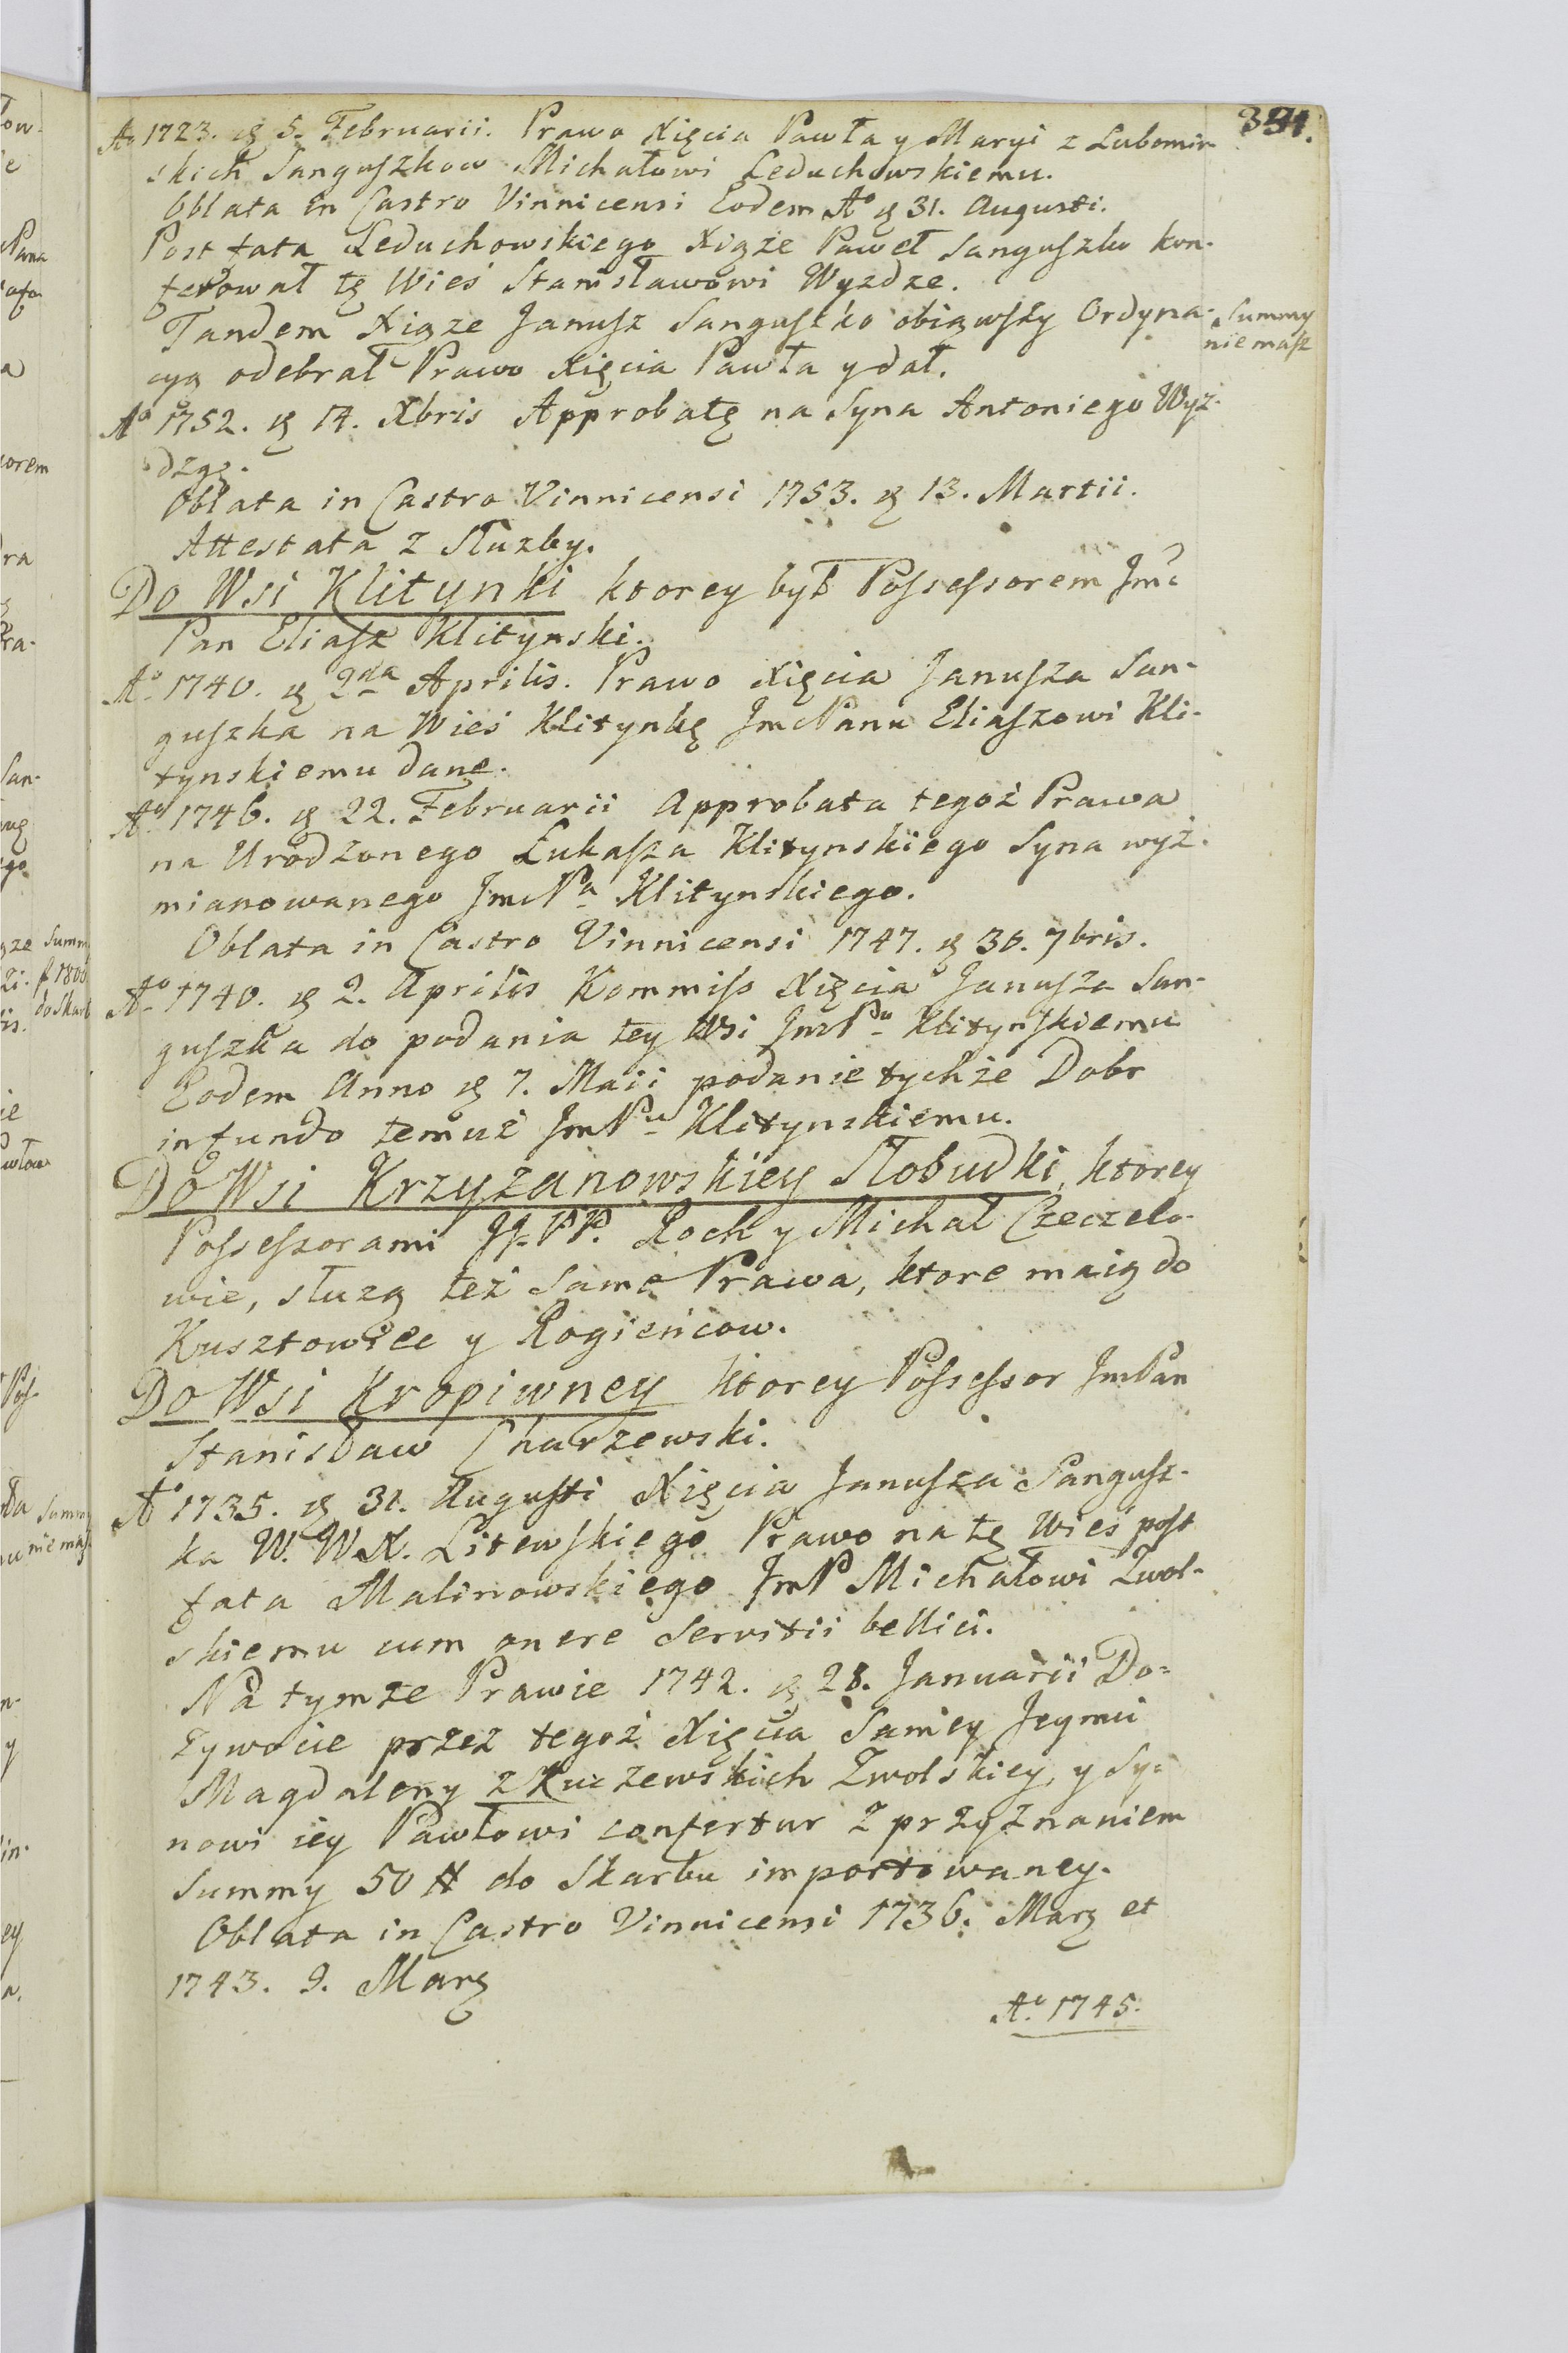 391.
Ao 1723. d 5. Februarii. Prawo Xięcia Pawła y Maryi z Lubomir-
skich Sanguszkow Michałowi Leduchowskiemu.
Oblata in Castro Vinnicensi Eodem Ao d 31. Augusti.
Post fata Leduchowskiego Xiąże Paweł Sanguszko kon-
ferował tę Wieś Stanisławowi Wyżdze.
Tandem Xiąze Janusz Sanguszko obiąwszy Ordyna-
cyą odebrał Prawo Xięcia Pawła y dał.
Summy
nie masz
Ao 1752. d 14. Xbris Approbatę na Syna Antoniego Wyż-
dzgę.
Oblata in Castro Vinnicensi 1753. d 13. Martii.
Attestata z Służby.
Do Wsi Klitynki ktorey był Possessorem Jmć
Pan Eliasz Klitynski.
Ao 1740. d 2da Aprilis. Prawo Xięcia Janusza San-
guszka na Wieś Klitynkę Jmć Panu Eliaszowi Kli-
tynskiemu dane.
Ao 1746. d 22. Februarii Approbata tegoż Prawa
na Urodzonego Łukasza Klitynskiego Syna wyż.
mianowanego Jmć Pa Klitynskiego.
Oblata in Castro Vinnicensi 1747. d 30. 7bris.
Ao 1740. d 2. Aprilis Kommiss Xięcia Janusza San-
guszka do podania tey Wsi JmPu Klitynskiemu
Eodem Anno d 7. Maii podanie tychże Dobr
in fundo temuż JmPu Klitynskiemu.
Do Wsi Krzyżanowskiey Słobudki, ktorey
Possessorami JJ. PP. Roch y Michał Czeczelo-
wie, służą też same Prawa, ktore maią do
Kusztowiec y Rogieńcow.
Do Wsi Kropiwney ktorey Possessor JmPan
Stanisław Charzewski.
Ao 1735. d 31. Augusti Xięcia Janusza Sangusz-
ka W. W. X. Litewskiego Prawo na tę Wieś post
fata Malinowskiego JmP Michałowi Zwol-
skiemu cum onere Servitii bellici.
Na tymże Prawie 1742. d 28. Januarii Do-
żywocie przez tegoż Xięcia Samey Jeymci
Magdaleny z Kuczewskich Zwolskiey, y Sy-
nowi iey Pawłowi confertur z przyznaniem
Summy 50 # do Skarbu importowaney.
Oblata in Castro Vinnicensi 1736. Marz et
1743. 9. Marz
Ao. 1745.